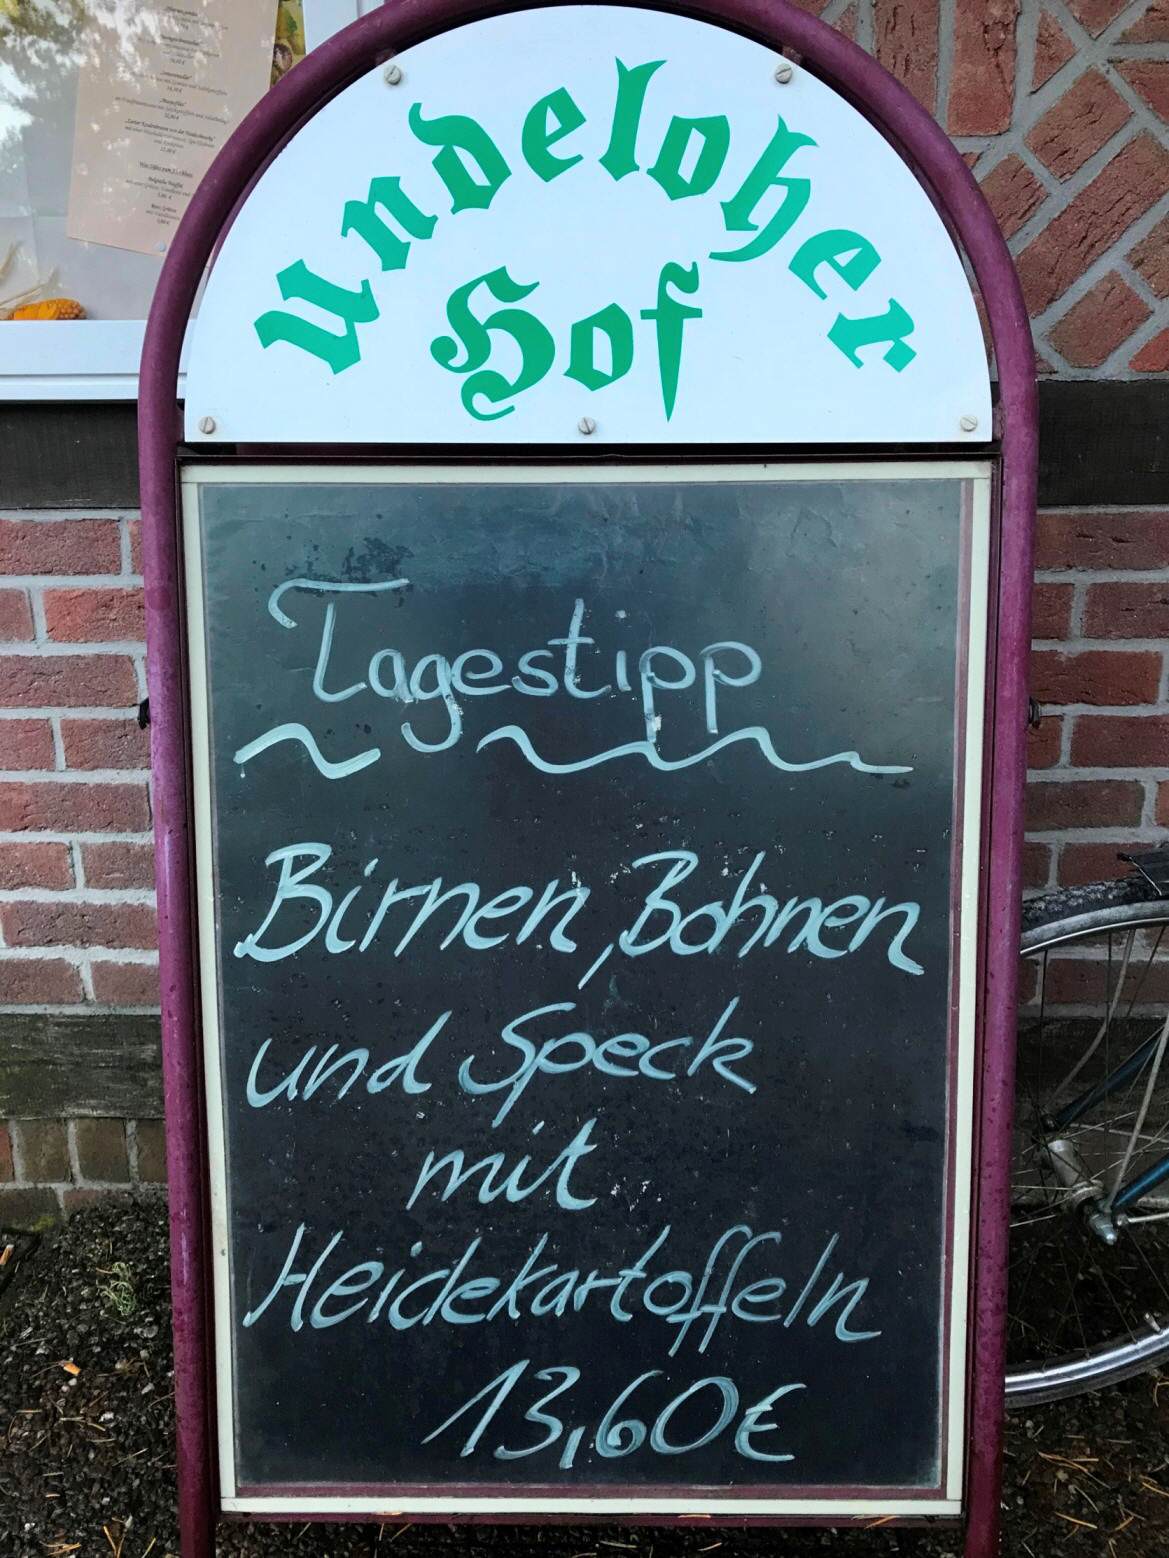 Undeloher
Hof
Tagestipp
Birnen, Bohnen
und Speck
mit
Heidekartoffeln
13,60€